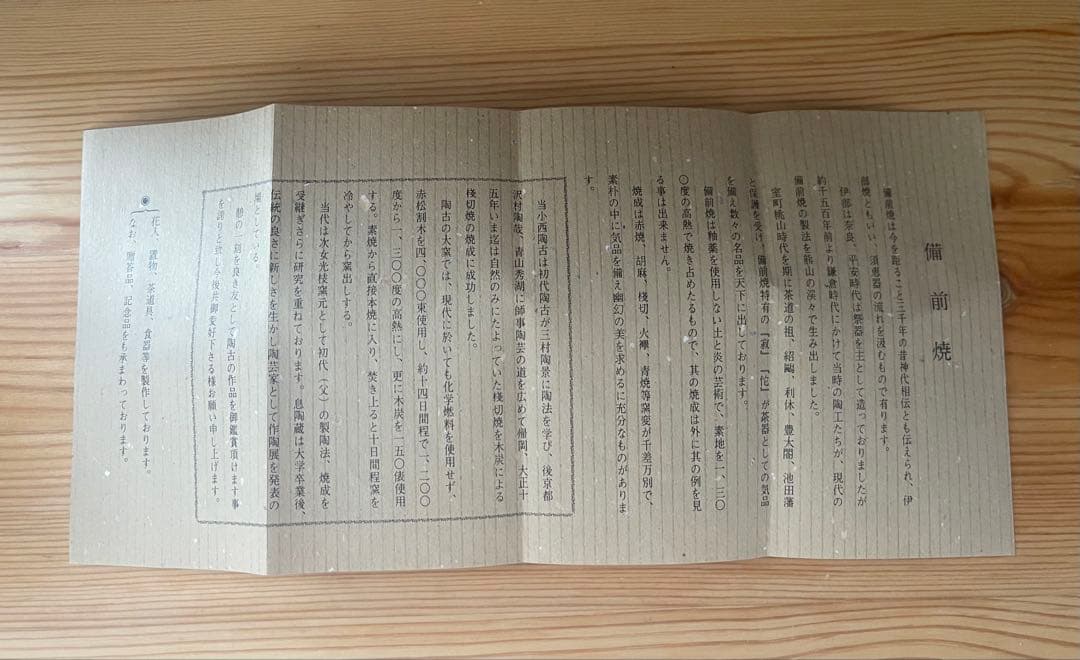 備前焼
備前焼は今を距ること三千年の昔神代相伝とも伝えられ、伊
部焼ともいい、須恵器の流れを汲むもので有ります。
伊部は奈良、平安時代は祭器を主として造っておりましたが
約千五百年前より鎌倉時代にかけて当時の陶工たちが、現代の
備前焼の製法を熊山の渓々で生み出しました。
室町桃山時代を期に茶道の祖、紹鷗、利休、豊太閤、池田藩
と保護を受け、備前焼特有の「寂」「侘」が茶器としての気品
を備え数々の名品を天下に出しております。
備前焼は釉薬を使用しない土と炎の芸術で、素地を一、三〇
〇度の高熱で焼き占めたるもので、其の焼成は外に其の例を見
る事は出来ません。
焼成は赤焼、胡麻、棧切、火襷、青焼等窯変が千差万別で、
素朴の中に気品を備え幽幻の美を求めるに充分なものがありま
す。
当小西陶古は初代陶古が三村陶景に陶法を学び、後京都
沢村陶哉、青山秀湖に師事陶芸の道を広めて帰岡、大正十
五年いま迄は自然のみにたよっていた棧切焼を木炭による
棧切焼の焼成に成功しました。
陶古の大窯では、現代に於いても化学燃料を使用せず、
赤松割木を四、〇〇〇束使用し、約十四日間程で一、二〇〇
度から一、三〇〇度の高熱にし、更に木炭を一五〇俵使用
する。素焼から直接本焼に入り、焚き上ると十日間程窯を
冷やしてから窯出しする。
当代は次女光枝窯元として初代（父）の製陶法、焼成を
受継ぎさらに研究を重ねております。息陶蔵は大学卒業後、
伝統の良さに新しさを生かし陶芸家として作陶展を発表の
場としている。
静の一刻を良き友として陶古の作品を御鑑賞頂けます事
を誇りと致し今後共御愛好下さる様お願い申し上げます。
花入、置物、茶道具、食器等を製作しております。
なお、贈答品、記念品をも承まわっております。